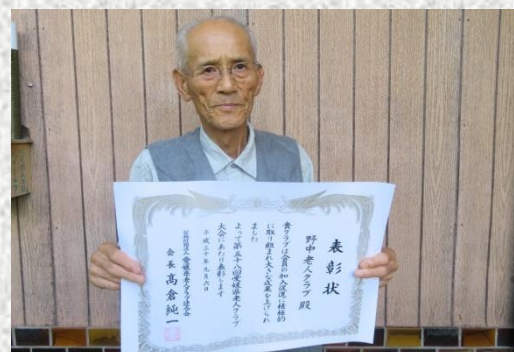 表彰状
野中老人クラブ 殿
貴クラブは会員の加入促進に積極的
に取り組まれ大きな成果を上げられ
ました
よって第五十六回愛媛県老人クラブ
大会にあたり表彰します
平成三十年九月六日
公益財団法人 愛媛県老人クラブ連合会
会長 高倉純一